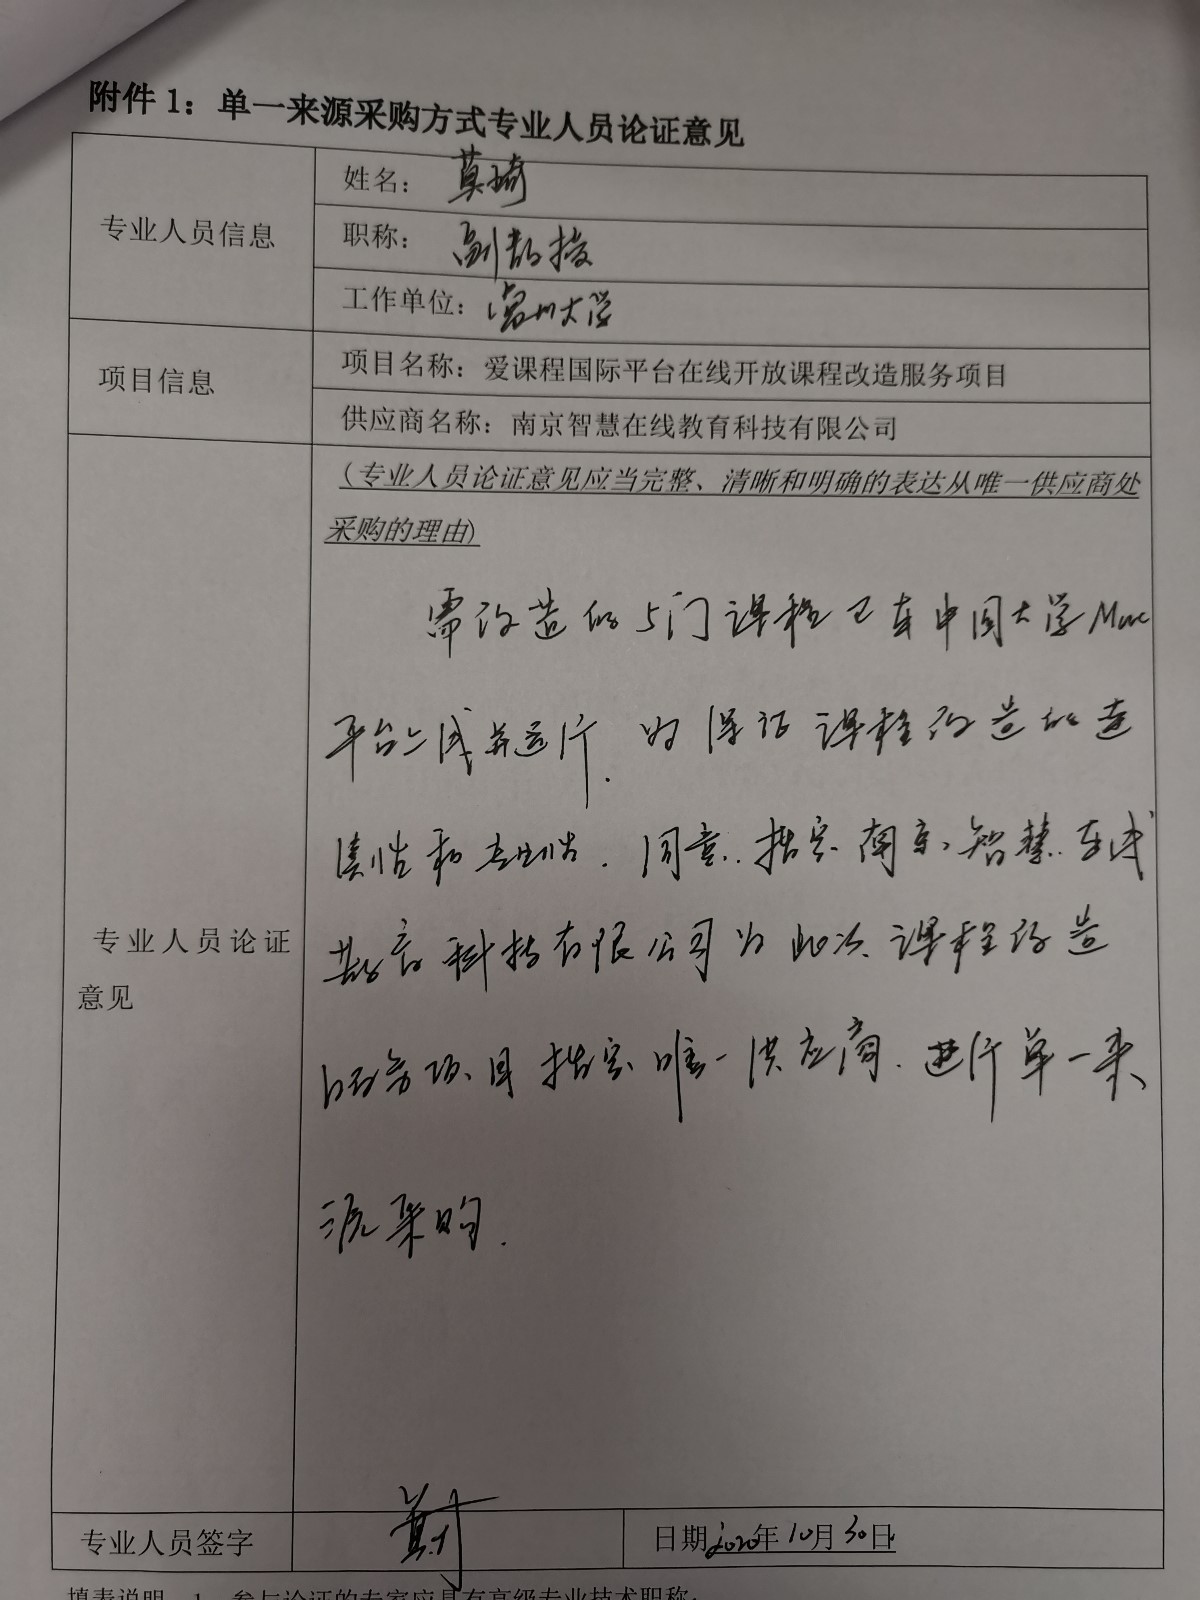 附件 1：单一来源采购方式专业人员论证意见
专业人员信息
姓名： 莫琦
职称： 副教授
工作单位：温州大学
项目信息
项目名称：爱课程国际平台在线开放课程改造服务项目
供应商名称：南京智慧在线教育科技有限公司
专业人员论证
意见
（专业人员论证意见应当完整、清晰和明确的表达从唯一供应商处
采购的理由)
需改造的5门课程已在中国大学Mooc
平台上线并运行.为保证课程改造的连
续性和专业性.同意指定南京智慧在线
教育科技有限公司为此次课程改造
服务项目指定唯一供应商.进行单一来
源采购.
专业人员签字
日期2020年10月30日
填表说明 1. 参与论证的专家应具有高级专业技术职称；